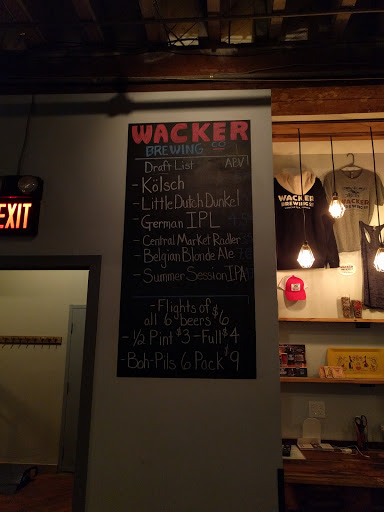 WACKER
BREWING CO
Draft List ABV
- Kölsch
- Little Dutch Dunkel
- German IPL
- Central Market Radler
- Belgian Blonde Ale
- Summer Session IPA
- Flights of
all 6 beers $6
- 1/2 Pint $3 - Full $4
- Boh-Pils 6 Pack $9
EXIT
WACKER
BREWING CO
WACKER
BREWING